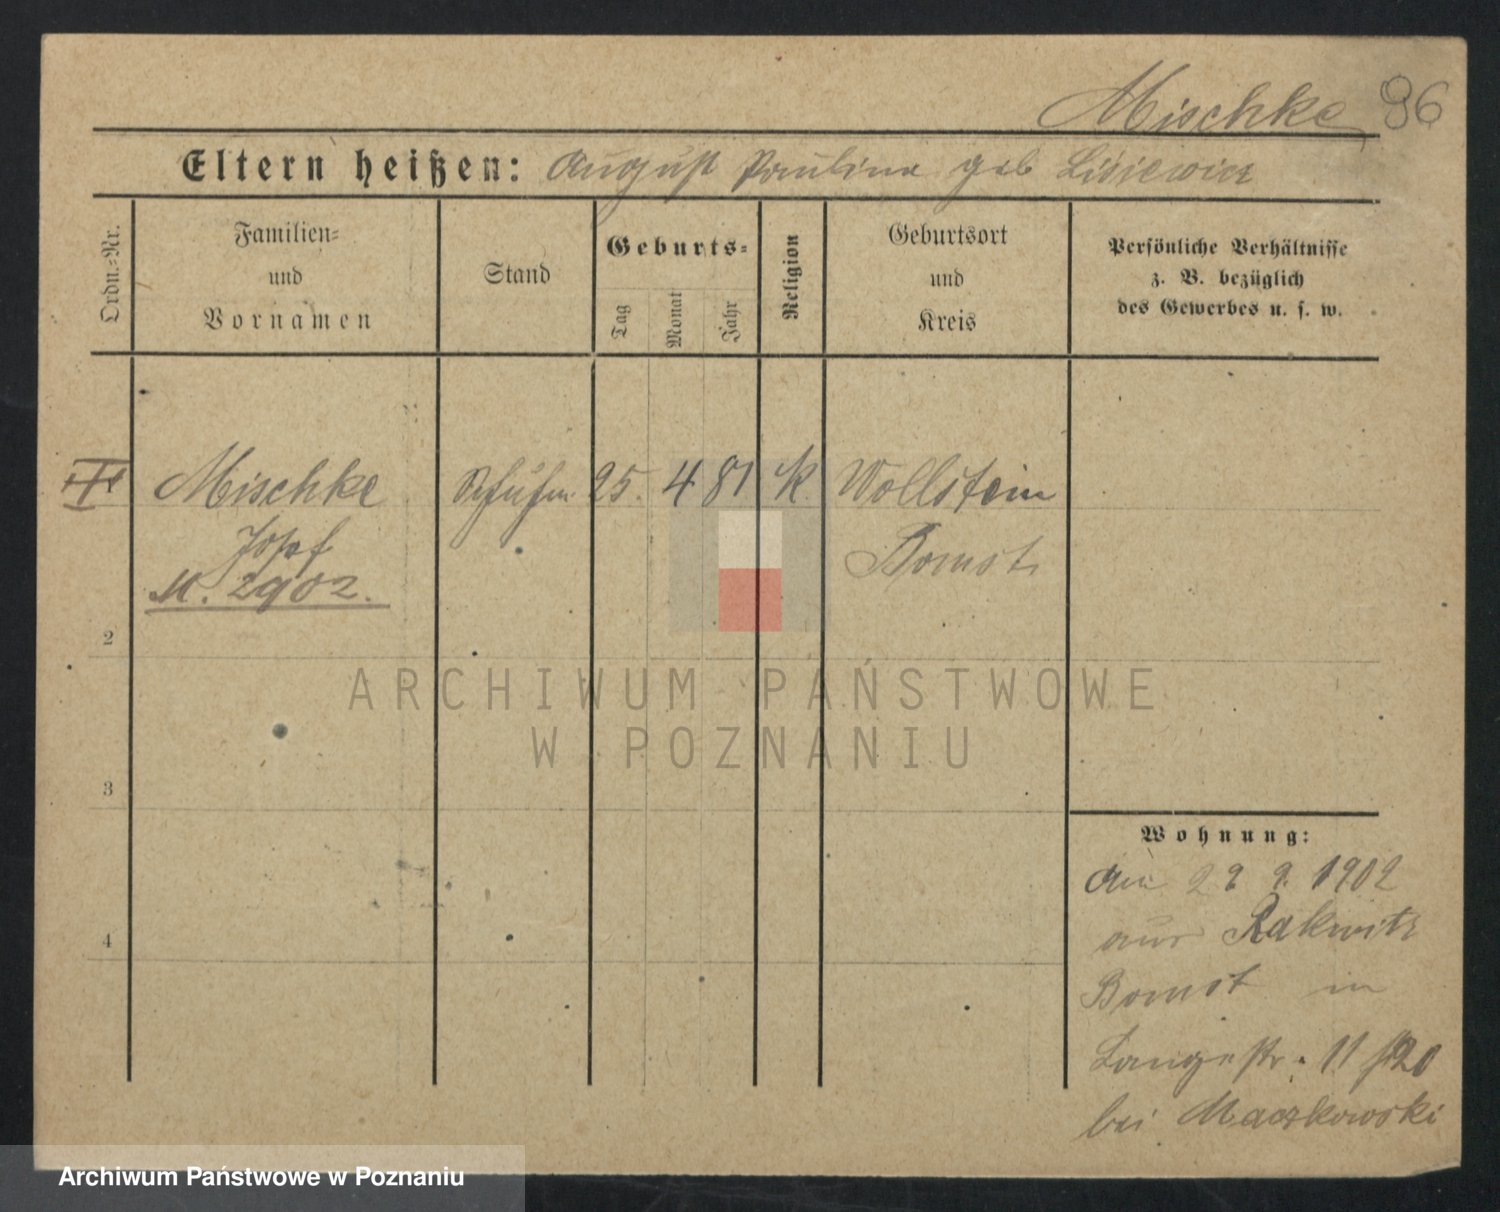 Mischke 96
Eltern heißen: August Paulina geb Lisiewicz
Ordn.-Nr.
Familien-
und
Vornamen
Stand
Geburts-
Tag
Monat
Jahr
Religion
Geburtsort
und
Kreis
Persönliche Verhältnisse
z. B. bezüglich
des Gewerbes u. s. w.
Mischke 25. 4 81 k. Wollstein
Josef Bomst
M. 2902.
2
3
4
Wohnung:
1902
aus Rakwitz
Bomst in
Langestr. 11
bei Maczkowski
ARCHIWUM PAŃSTWOWE
W POZNANIU
Archiwum Państwowe w Poznaniu